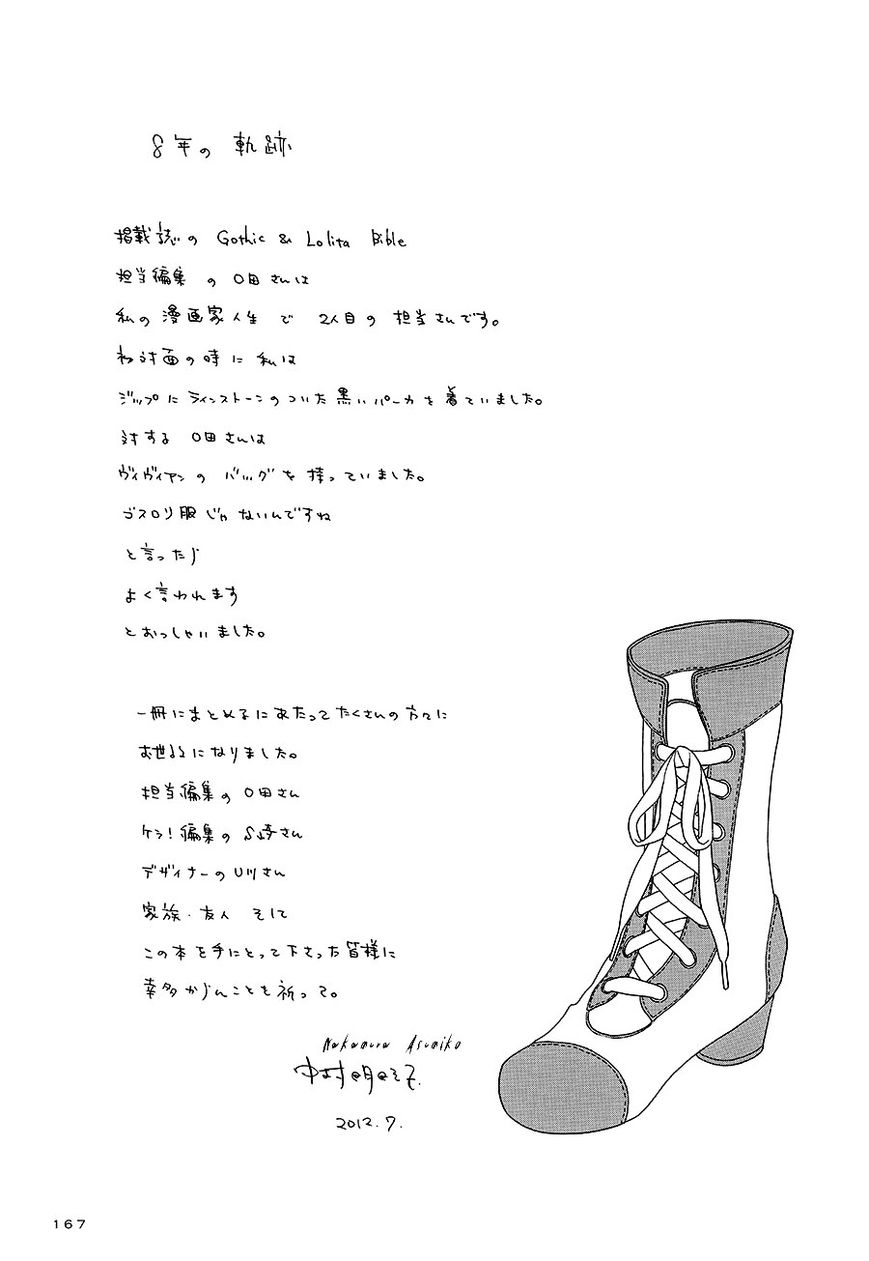 8年の 軌跡
掲載誌の Gothic & Lolita Bible
担当編集 の O田さんは
私の 漫画家人生 で 2人目の 担当さんです。
初対面の時に 私は
ジップに ラインストーンの ついた 黒い パーカを 着ていました。
対する O田さんは
ヴィヴィアンの バッグを 持っていました。
ゴスロリ服じゃないんですね
と言ったら
よく言われます
とおっしゃいました。
一冊にまとめるにあたって たくさんの方々に
お世話になりました。
担当編集の O田さん
ケラ!編集の S崎さん
デザイナーの U川さん
家族・友人 そして
この本を手にとって下さった皆様に
幸多からんことを祈って。
Nakamura Asumiko
中村明日美子
2012.7.
167